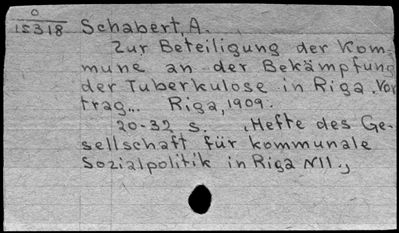 0
15318 Schabert, A.
Zur Beteiligung der Kom-
mune an der Bekämpfung
der Tuberkulose in Riga. Vor
trag... Riga, 1909.
20-32 s. „Hefte des Ge-
sellschaft für kommunale
Sozialpolitik in Riga N11."